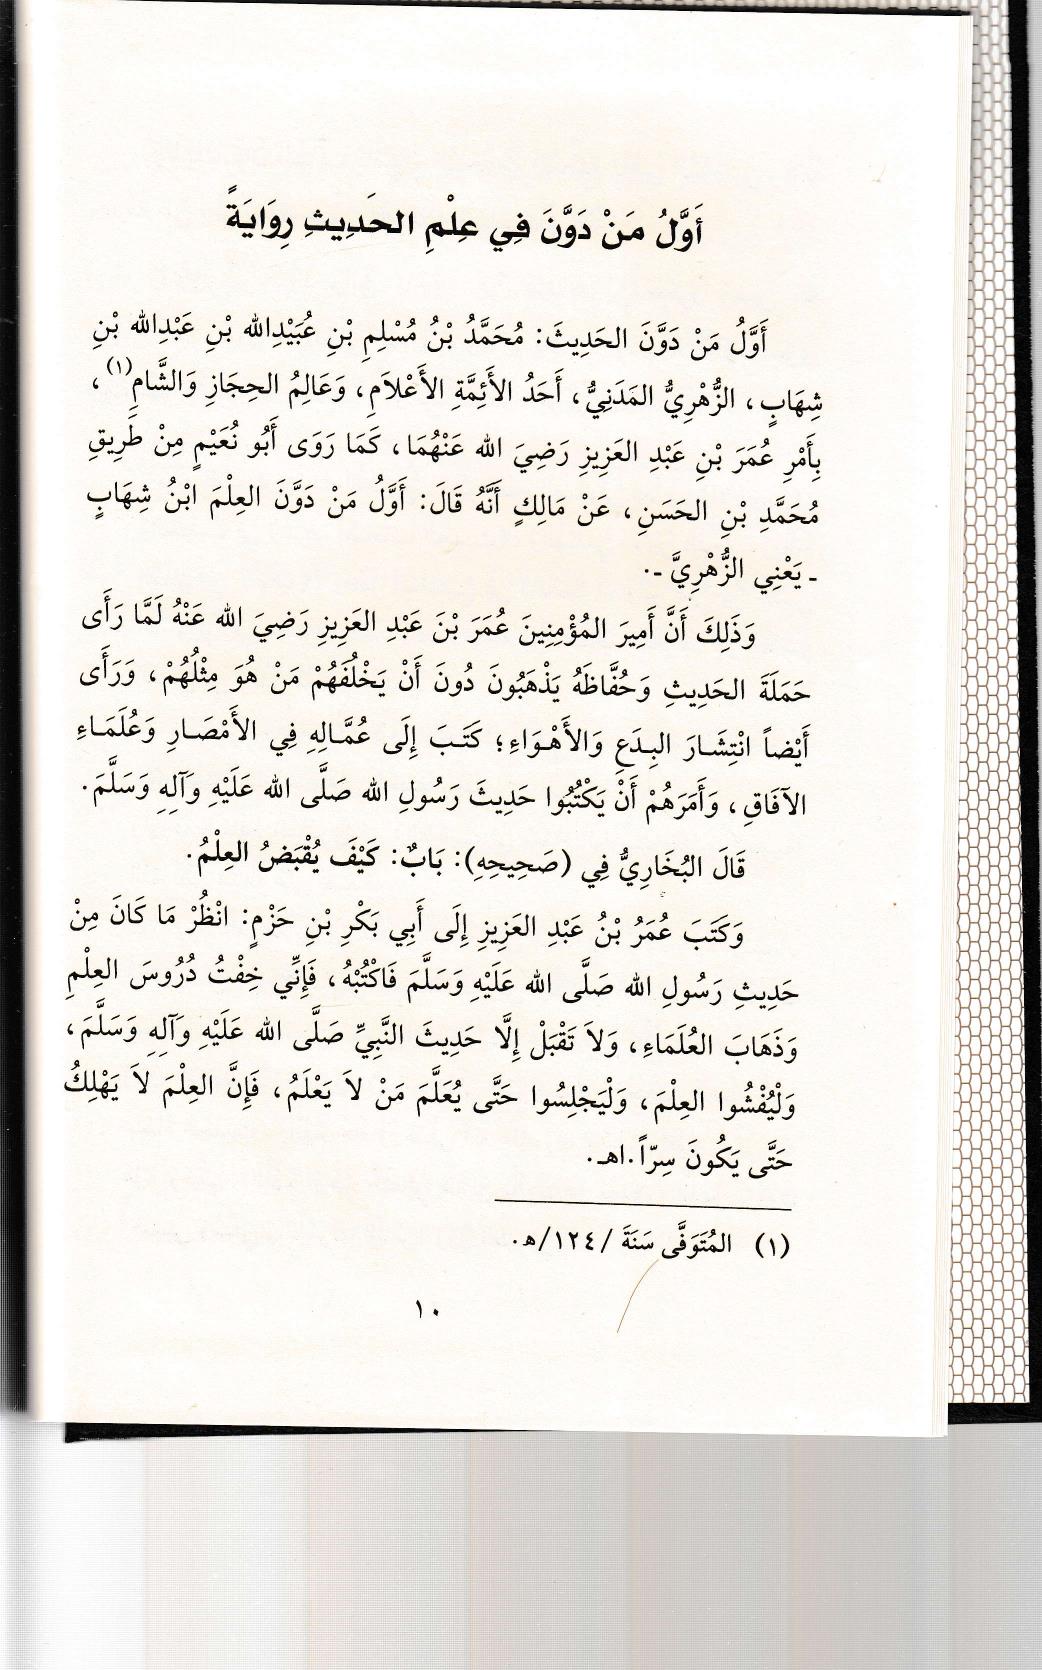 أَوَّلُ مَنْ دَوَّنَ فِي عِلْمِ الحَدِيثِ رِوَايَةً
أَوَّلُ مَنْ دَوَّنَ الحَدِيثَ: مُحَمَّدُ بْنُ مُسْلِمِ بْنِ عُبَيْدِالله بْنِ عَبْدِالله بْنِ
شِهَابٍ، الزُّهْرِيُّ المَدَنِيُّ، أَحَدُ الأَئِمَّةِ الأَعْلَامِ، وَعَالِمُ الحِجَازِ وَالشَّامِ(١)،
بِأَمْرِ عُمَرَ بْنِ عَبْدِ العَزِيزِ رَضِيَ الله عَنْهُمَا، كَمَا رَوَى أَبُو نُعَيْمٍ مِنْ طَرِيقِ
مُحَمَّدِ بْنِ الحَسَنِ، عَنْ مَالِكٍ أَنَّهُ قَالَ: أَوَّلُ مَنْ دَوَّنَ العِلْمَ ابْنُ شِهَابٍ
ـ يَعْنِي الزُّهْرِيَّ ـ.
وَذَلِكَ أَنَّ أَمِيرَ المُؤْمِنِينَ عُمَرَ بْنَ عَبْدِ العَزِيزِ رَضِيَ الله عَنْهُ لَمَّا رَأَى
حَمَلَةَ الحَدِيثِ وَحُفَّاظَهُ يَذْهَبُونَ دُونَ أَنْ يَخْلُفَهُمْ مَنْ هُوَ مِثْلُهُمْ، وَرَأَى
أَيْضاً انْتِشَارَ البِدَعِ وَالأَهْوَاءِ؛ كَتَبَ إِلَى عُمَّالِهِ فِي الأَمْصَارِ وَعُلَمَاءِ
الآفَاقِ، وَأَمَرَهُمْ أَنْ يَكْتُبُوا حَدِيثَ رَسُولِ الله صَلَّى الله عَلَيْهِ وَآلِهِ وَسَلَّمَ.
قَالَ البُخَارِيُّ فِي (صَحِيحِهِ): بَابٌ: كَيْفَ يُقْبَضُ العِلْمُ.
وَكَتَبَ عُمَرُ بْنُ عَبْدِ العَزِيزِ إِلَى أَبِي بَكْرِ بْنِ حَزْمٍ: انْظُرْ مَا كَانَ مِنْ
حَدِيثِ رَسُولِ الله صَلَّى الله عَلَيْهِ وَسَلَّمَ فَاكْتُبْهُ، فَإِنِّي خِفْتُ دُرُوسَ العِلْمِ
وَذَهَابَ العُلَمَاءِ، وَلاَ تَقْبَلْ إِلَّا حَدِيثَ النَّبِيِّ صَلَّى الله عَلَيْهِ وَآلِهِ وَسَلَّمَ،
وَلْيُفْشُوا العِلْمَ، وَلْيَجْلِسُوا حَتَّى يُعَلَّمَ مَنْ لاَ يَعْلَمُ، فَإِنَّ العِلْمَ لاَ يَهْلِكُ
حَتَّى يَكُونَ سِرّاً.اهـ.
(١) المُتَوَفَّى سَنَةَ /١٢٤/ه.
١٠